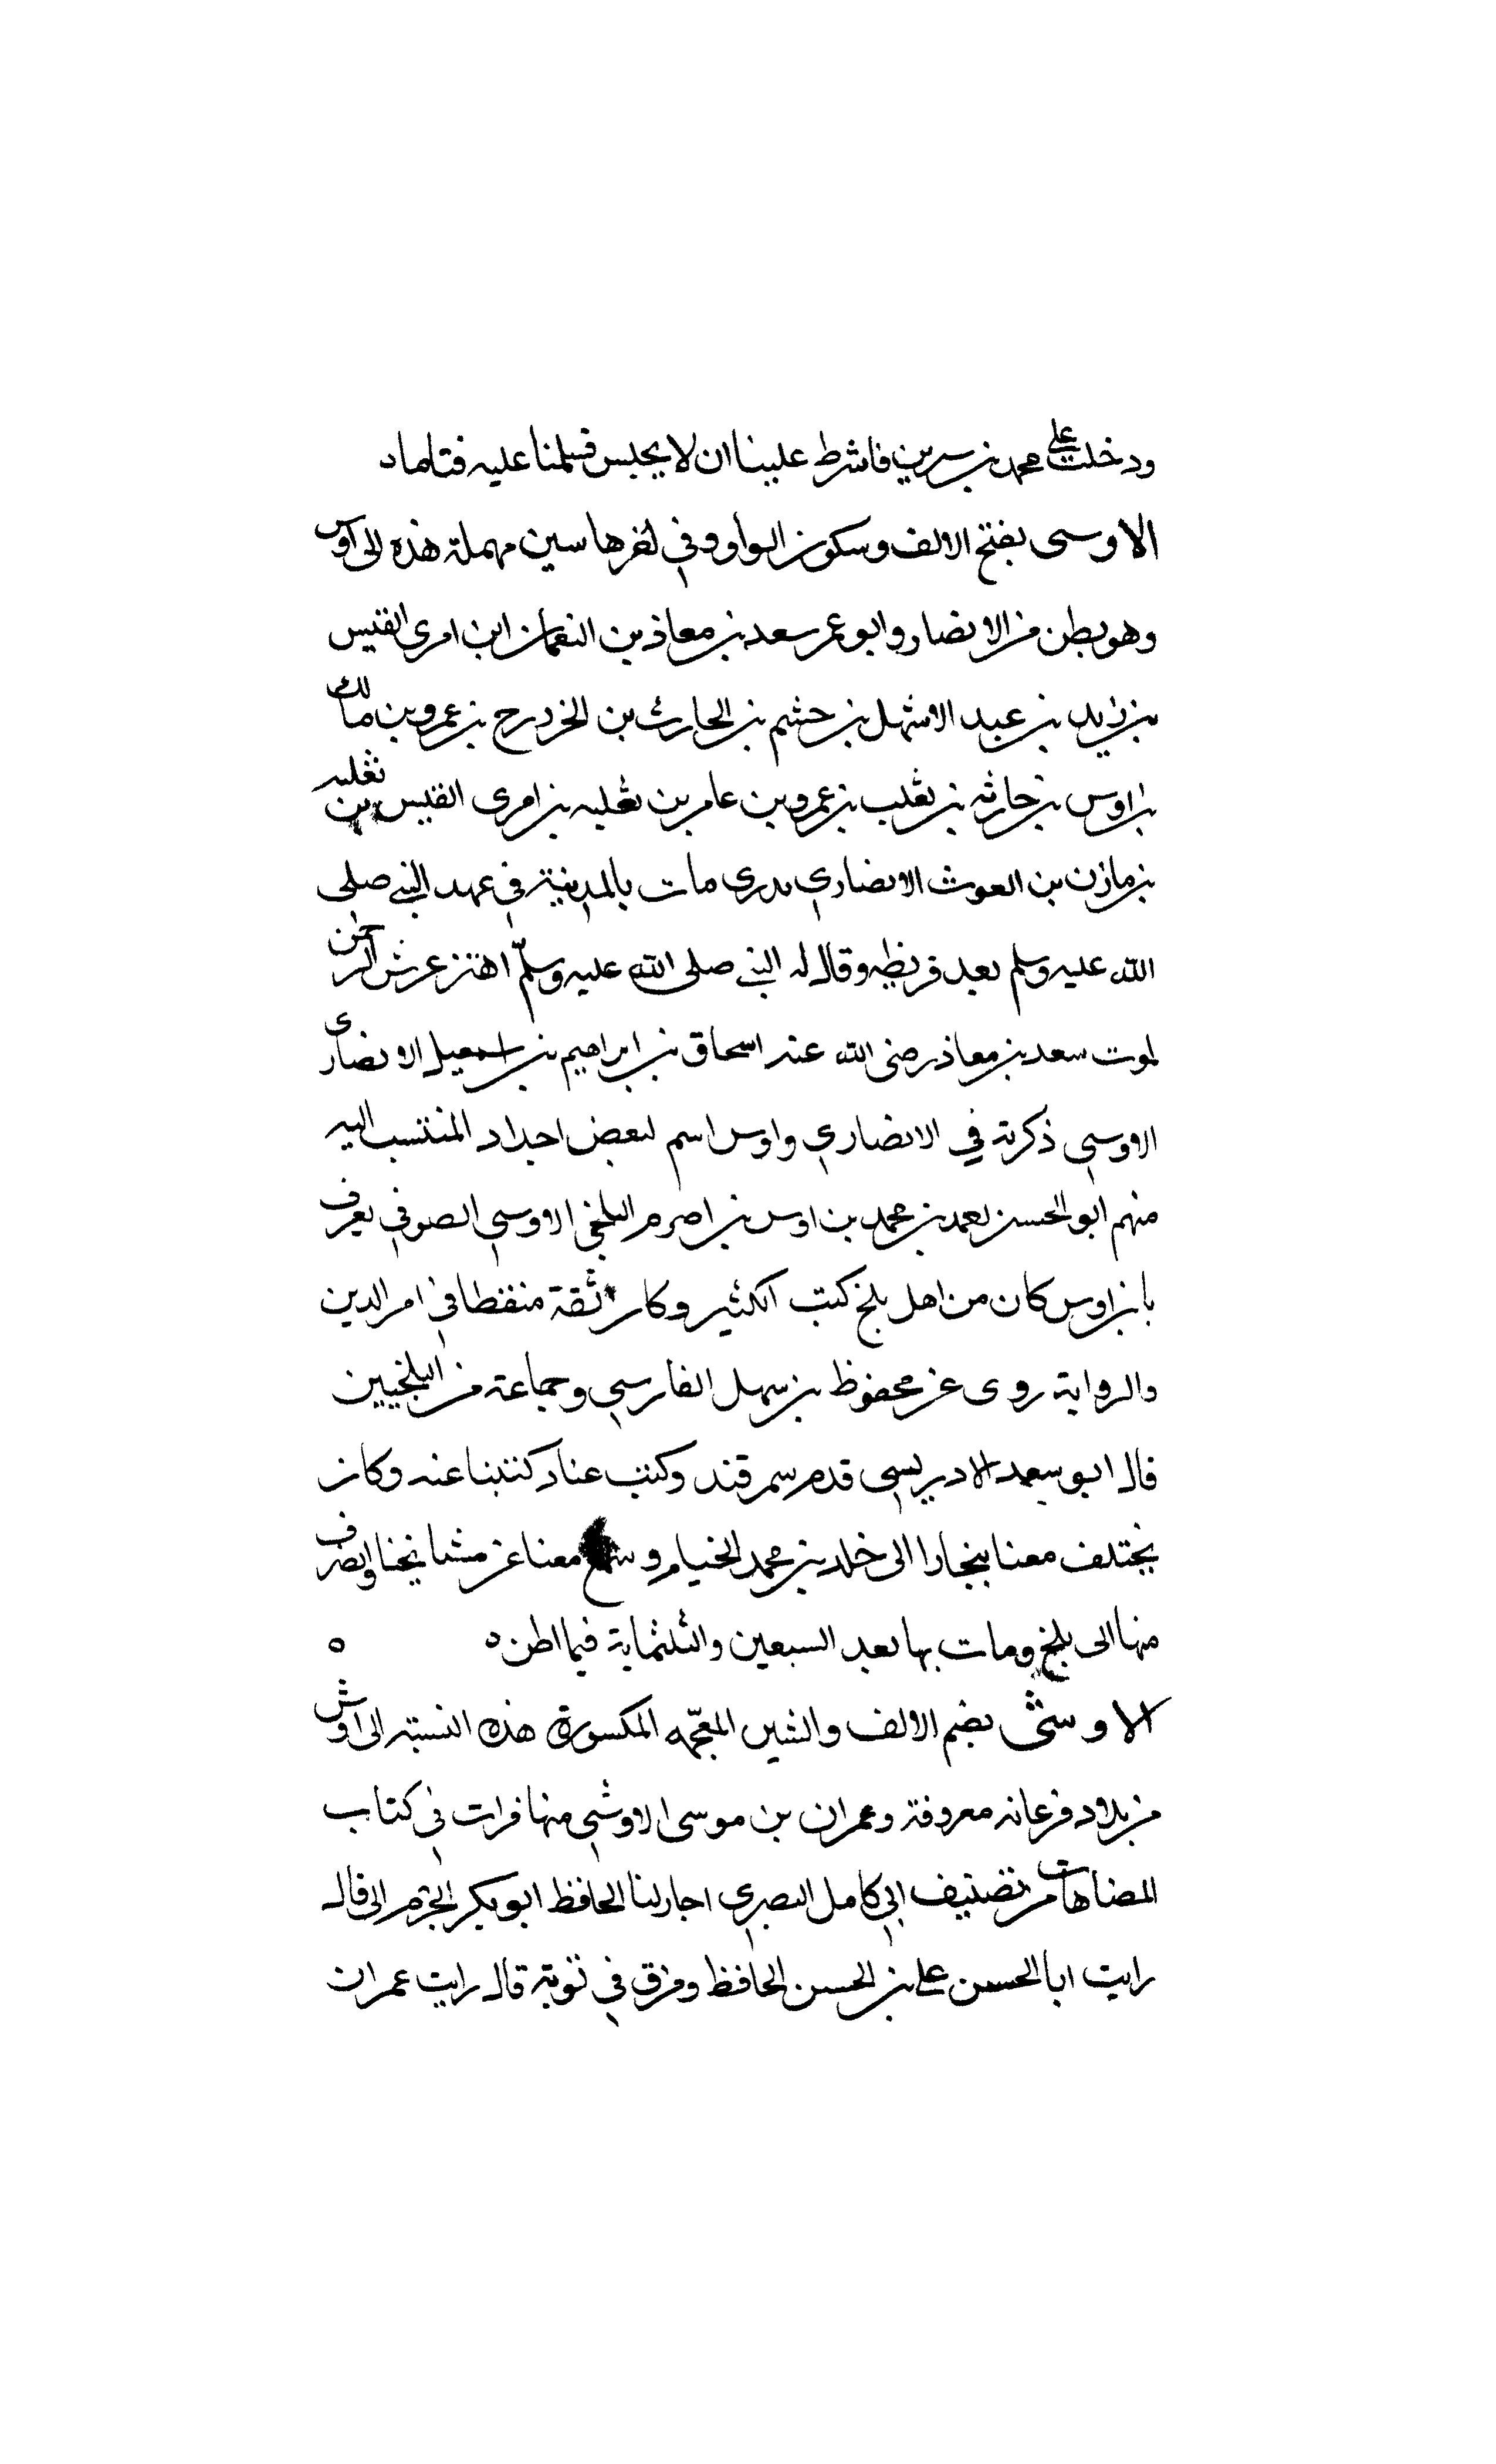 ودخلت على محمد بن سيرين فاشرط علينا ان لا يجلس فسلمنا عليه قياما
الاوسى بفتح الالف وسكون الواو وفي اخرها سين مهملة هذه الى اوس
وهو بطن من الانصار وابو عمر سعد بن معاذ بن النعمان ابن امرى القيس
بن زايد بن عبد الاشهل بن حشم بن الحارث بن الخزرج بن عمرو بن مالك
بن اوس بن حارثه بن تغلب بن عمرو بن عامر بن ثعلبه بن امرى القيس بن ثعلبه
بن مازن بن الغوث الانصاري بدرى مات بالمدينة في عهد النبي صلى
الله عليه وسلم بعد قريظه وقال له النبي صلى الله عليه وسلم اهتز عرش الرحمن
لموت سعد بن معاذ رضى الله عنه اسحاق بن ابراهيم بن اسمعيل الانصارى
الاوسي ذكرته في الانصاري واوس اسم لبعض اجداد المنتسب اليه
منهم ابو الحسن احمد بن محمد بن اوس بن اصرم البلخي الاوسي الصوفي يعرف
بابن اوس كان من اهل بلخ كتب الكثير وكان ثقة متقظا في امر الدين
والرواية روى عن محفوظ بن سهل الفارسي وجماعة من البلخيين
قال ابو سعد الادريسي قدم سمرقند وكتب عنا وكتبنا عنه وكان
يختلف معنا ببخارا الى خلف بن محمد الخيام وسمع معنا عن مشايخنا وانصرف
منها الى بلخ ومات بها بعد السبعين والثلثماية فيما اظن ٥ ٥
الاوشى بضم الالف والشين المعجمه المكسورة هذه النسبة الى اوش
من بلاد فرغانه معروفة وعمران بن موسى الاوشي منها قرات في كتاب
المضاهات من تصنيف ابي كامل البصري اجاز لنا الحافظ ابو بكر الجرمرالى قال
رايت ابا الحسن على بن الحسن الحافظ ومزق في توبة قال رايت عمران